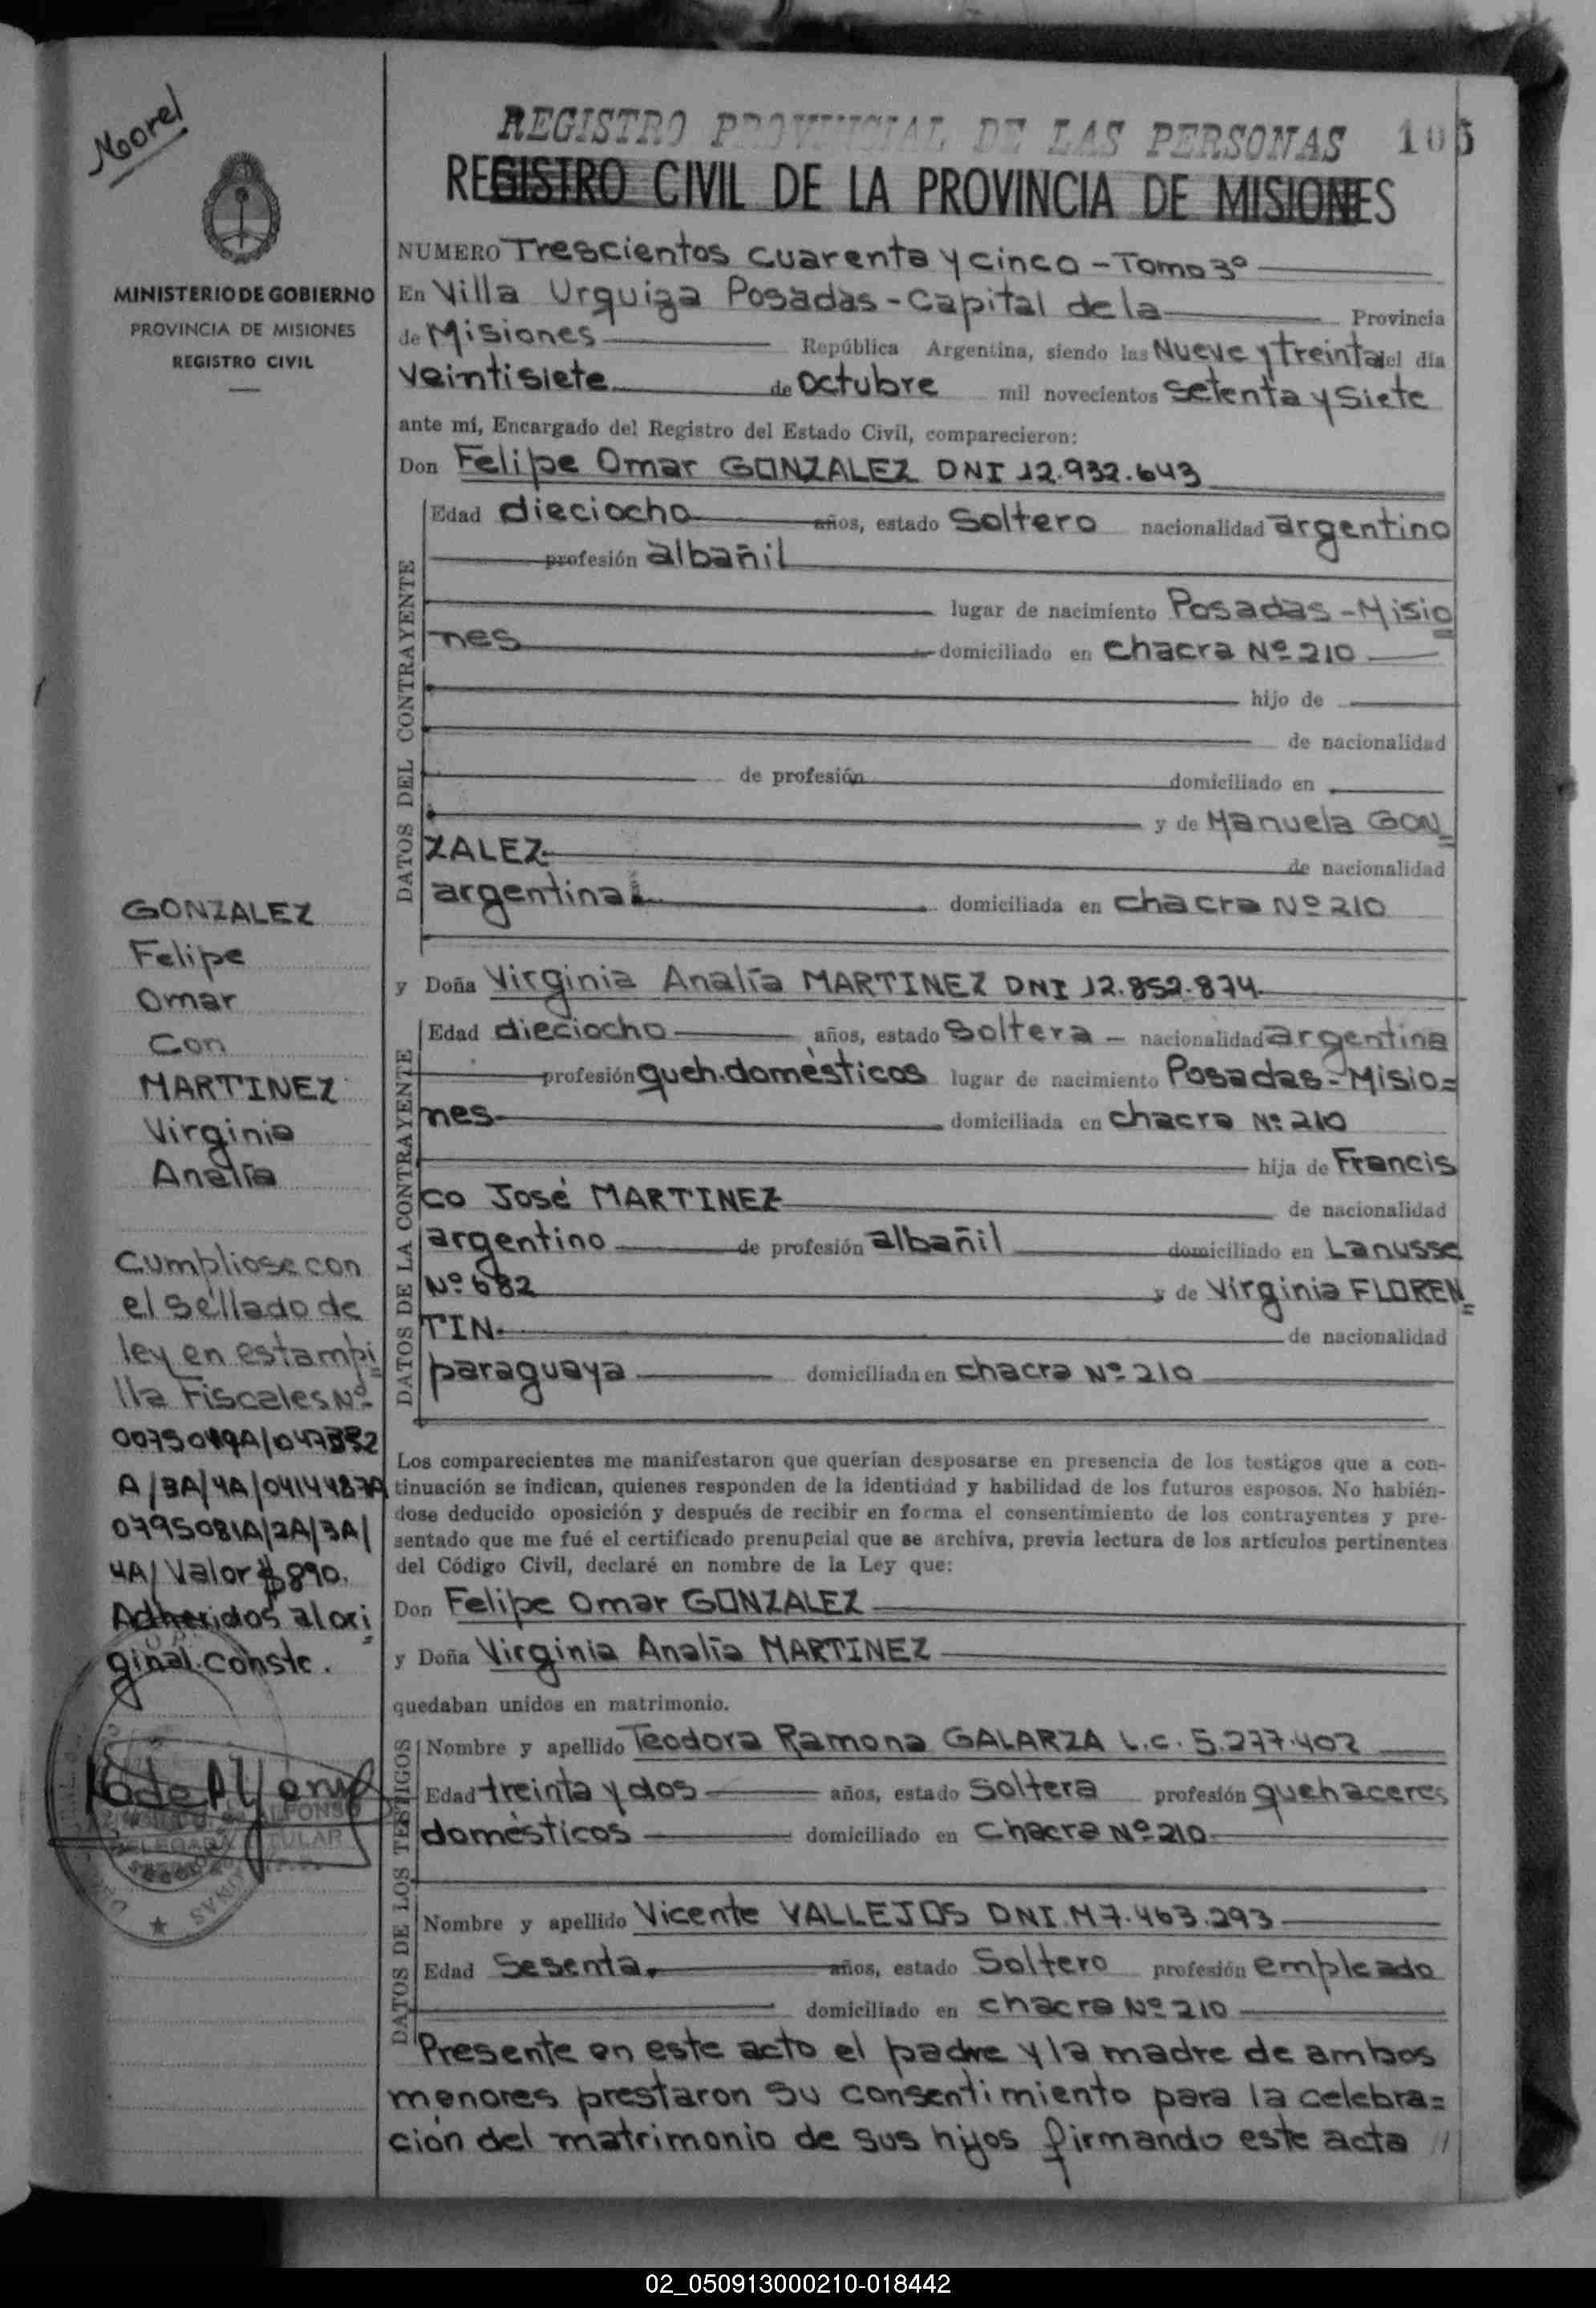 Morel
MINISTERIO DE GOBIERNO
PROVINCIA DE MISIONES
REGISTRO CIVIL
GONZALEZ
Felipe
Omar
Con
MARTINEZ
Virginia
Analía
Cumpliose con
el sellado de
ley en estampi=
lla Fiscales Nº
A/3A/4A/0414487A
0795081A/2A/3A/
4A/ Valor $ 890.
Adheridos al ori=
ginal. Conste.
ALFONSO
DELEGADA TITULAR
REGISTRO PROVINCIAL DE LAS PERSONAS 105
REGISTRO CIVIL DE LA PROVINCIA DE MISIONES
NUMERO Trescientos cuarenta y cinco - Tomo 3º
En Villa Urquiza Posadas - Capital de la Provincia
de Misiones República Argentina, siendo las Nueve y treinta del día
veintisiete de octubre mil novecientos setenta y siete
ante mí, Encargado del Registro del Estado Civil, comparecieron:
Don Felipe Omar GONZALEZ DNI 12.932.643
DATOS DEL CONTRAYENTE
Edad dieciocho años, estado Soltero nacionalidad argentino
profesión albañil
lugar de nacimiento Posadas - Misio=
nes domiciliado en chacra Nº 210
hijo de
de nacionalidad
de profesión domiciliado en
y de Manuela GON=
ZALEZ de nacionalidad
argentina domiciliada en chacra Nº 210
y Doña Virginia Analía MARTINEZ DNI 12.852.874
DATOS DE LA CONTRAYENTE
Edad dieciocho años, estado Soltera - nacionalidad argentina
profesión queh. domésticos lugar de nacimiento Posadas - Misio=
nes domiciliada en chacra Nº 210
hija de Francis
co José MARTINEZ de nacionalidad
argentino de profesión albañil domiciliado en Lanusse
Nº 682 y de Virginia FLOREN=
TIN de nacionalidad
paraguaya domiciliada en chacra Nº 210
Los comparecientes me manifestaron que querían desposarse en presencia de los testigos que a con-
tinuación se indican, quienes responden de la identidad y habilidad de los futuros esposos. No habién-
dose deducido oposición y después de recibir en forma el consentimiento de los contrayentes y pre-
sentado que me fué el certificado prenupcial que se archiva, previa lectura de los artículos pertinentes
del Código Civil, declaré en nombre de la Ley que:
Don Felipe Omar GONZALEZ
y Doña Virginia Analía MARTINEZ
quedaban unidos en matrimonio.
DATOS DE LOS TESTIGOS
Nombre y apellido Teodora Ramona GALARZA L.C. 5.277.402
Edad treinta y dos años, estado Soltera profesión quehaceres
domésticos domiciliado en Chacra Nº 210
Nombre y apellido Vicente VALLEJOS DNI. M 7.463.293
Edad Sesenta años, estado Soltero profesión empleado
domiciliado en chacra Nº 210
Presente en este acto el padre y la madre de ambos
menores prestaron su consentimiento para la celebra=
ción del matrimonio de sus hijos firmando este acta //
02_050913000210-018442